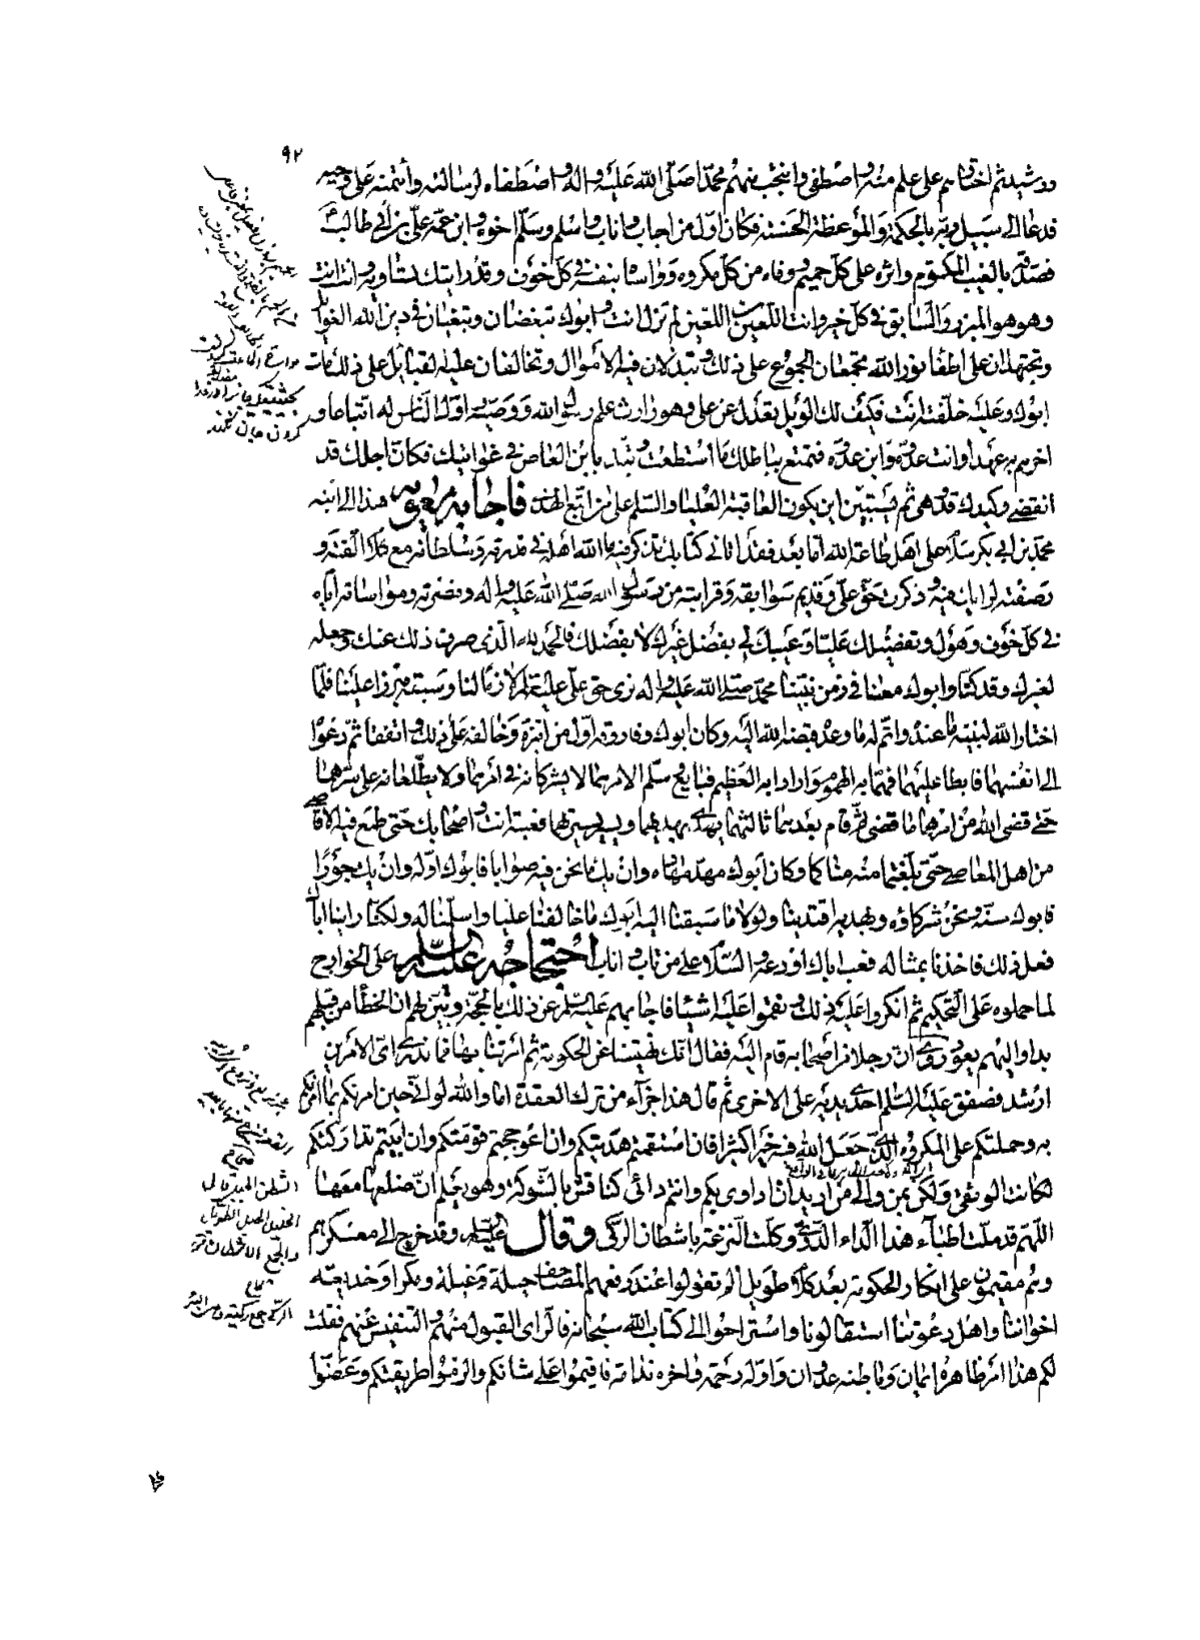 ٩٢
ورشيد ثم اختارهم على علم منه واصطفى وانتجب منهم محمدا صلى الله عليه واله واصطفاه لرسالته وائتمنه على وحيه
فدعا الى سبيل ربه بالحكمة والموعظة الحسنة فكان اول من اجاب واناب واسلم وسلم اخوه وابن عمه علي بن ابي طالب
فصدقه بالغيب المكتوم واثره على كل حميم ووقاه من كل مكروه وواساه بنفسه في كل خوف وقد رايتك تساويه وانت انت
وهو هو المبرز والسابق في كل خير وانت اللعين بن اللعين لم تزل انت وابوك تبغضان وتبغيان في دين الله الغوايل
وتجتهدان على اطفاء نور الله تجمعان الجموع على ذلك وتبذلان فيه الاموال وتخالفان عليه القبايل على ذلك مات
ابوك وعليه خلفته انت فكيف لك الويل تعدل عن علي وهو وارث علم رسول الله ووصيه اول الناس له اتباعا و
اخرهم به عهدا وانت عدوه وابن عدوه فتمتع بباطلك ما استطعت وتبد بابن العاص في غوايتك فكان اجلك قد
انقضى وكيدك قد وهى ثم يستبين لمن يكون العاقبة العليا والسلم على من اتبع الهدى فاجابه معوية هذا الى ابنه
محمد بن ابي بكر سلام على اهل طاعة الله اما بعد فقد اتاني كتابك تذكر فيه ما الله اهله في قدرته وسلطانه مع كلام الفته و
رصفته لرايك فيه وذكرت حق علي وقديم سوابقه وقرابته من رسول الله صلى الله عليه واله ونصرته ومواساته اياه
في كل خوف وهول وتفضيلك عليا وعيبك لي بفضل غيرك لا بفضلك فالحمد لله الذي صرف ذلك عنك وجعله
لغيرك وقد كنا وابوك معنا في زمن نبينا محمد صلى الله عليه واله نرى حق علي عليه لازما لنا وسبقه مبرزا علينا فلما
اختار الله لنبيه ما عنده واتم له ما وعده قبضه الله اليه وكان ابوك وفاروقه اول من ابتزه وخالفه على ذلك واتفقا ثم دعوا
الى انفسهما فابطا عليهما فهما به الهموم وارادا به العظيم فبايع وسلم لامرهما لا يشركانه في امرهما ولا يطلعانه على سرهما
حتى قضى الله من امرهما ما قضى ثم قام بعدهما ثالثهما يهدي بهديهما ويسير بسيرتهما فعبته انت واصحابك حتى طمع فيه الاقاصي
من اهل المعاصي حتى بلغتما منه مناكما وكان ابوك مهد مهاده وان يك ما نحن فيه صوابا فابوك اوله وان يك جورا
فابوك سنه ونحن شركاؤه وبهديه اقتدينا ولولا ما سبقنا اليه ابوك ما خالفنا عليا واسلمنا له ولكنا راينا اباك
فعل ذلك فاخذنا بمثاله فعب اباك او دعه والسلام على من تاب واناب احتجاجه عليه السلم على الخوارج
لما حملوه على التحكيم ثم انكروا عليه ذلك ونقموا عليه اشياء فاجابهم عليه السلم عن ذلك بالحجة وبين لهم ان الخطأ من قبلهم
بدا واليهم يعود روي ان رجلا من اصحابه قام اليه فقال انك نهيتنا عن الحكومة ثم امرتنا بها فما ندري اي الامرين
ارشد فصفق عليه السلم احدى يديه على الاخرى ثم قال هذا جزاء من ترك العقدة اما والله لو اني حين امرتكم بما امرتكم
به وحملتكم على المكروه الذي جعل الله فيه خيرا كثيرا فان استقمتم هديتكم وان اعوججتم قومتكم وان ابيتم تداركتكم
لكانت الوثقى ولكن بمن والى من اريد ان اداوي بكم وانتم دائي كناقش بالشوكة وهو يعلم ان ضلعها معها
اللهم قد ملت اطباء هذا الداء الدوي وكلت النزعة باشطان الركي وقال عليه السلم وقد خرج الى معسكرهم
وهم مقيمون على انكار الحكومة بعد كلام طويل الم تقولوا عند رفعهم المصاحف حيلة وغيلة ومكرا وخديعة
اخواننا واهل دعوتنا استقالونا واستراحوا الى كتاب الله سبحانه فالراي القبول منهم والتنفيس عنهم فقلت
لكم هذا امر ظاهره ايمان وباطنه عدوان واوله رحمة واخره ندامة فاقيموا على شانكم والزموا طريقتكم وعضوا